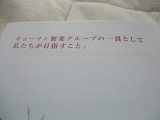 キョーリン製薬グループの一員として
私たちが目指すこと。